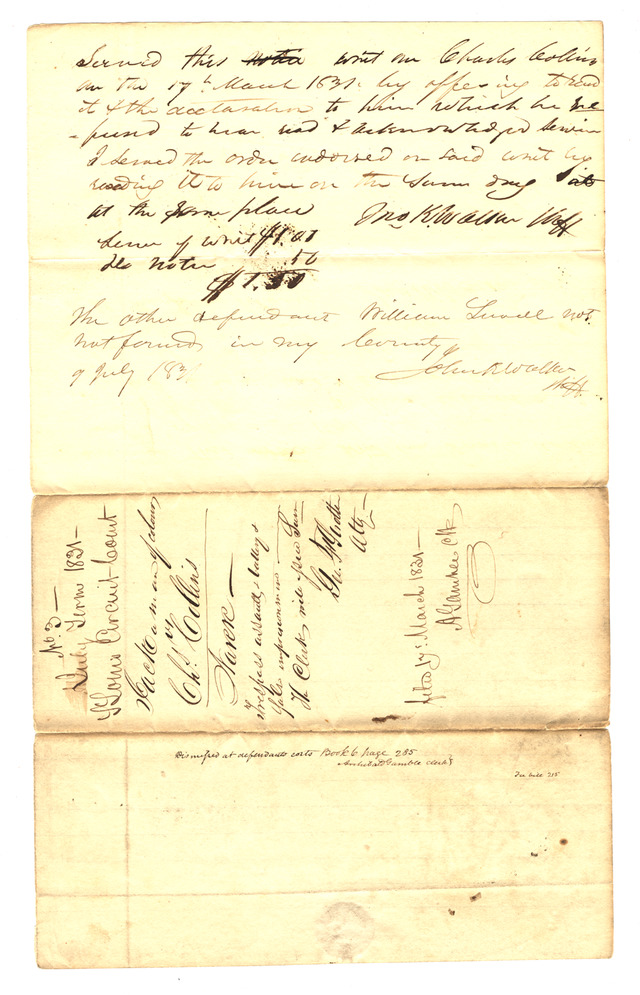 Served this writ on Charles Collins
on the 17th March 1831. by offering to read
it & the declaration to him which he re
-fused to hear read & acknowledged service
I served the order endorsed on said writ by
reading it to him on the same day
at the same place Jno K. Walker Shff
Service of writ $1.00
do notice 50
$1.50
The other defendant William not
not found in my County
9 July 1831 John K Walker
Shff.
No. 3 —
July Term 1831 —
St Louis Circuit Court
Jack a man of colour
vs
Chs. Collins
Narr —
Trespass assault & battery &
false imprisonment —
The Clerk will issue
Atty —
filed 17. March 1831 —
A Gamble Clk
Dismissed at defendants costs Book 6 page 285
Archibald Gamble clerk